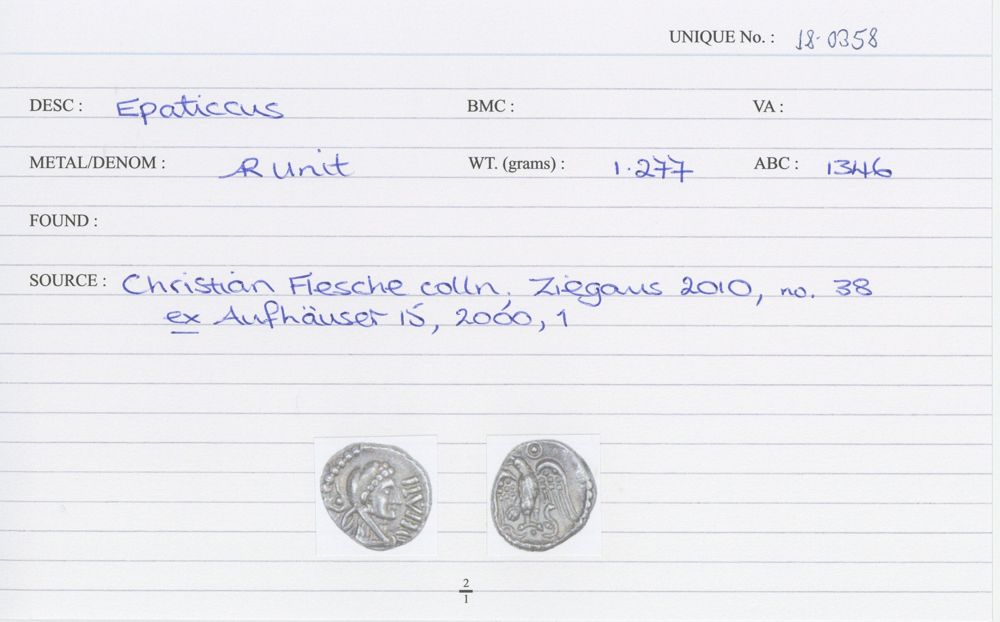 UNIQUE No. : 18·0358
DESC : Epaticcus BMC : VA :
METAL/DENOM : AR Unit WT. (grams) : 1·277 ABC : 1346
FOUND :
SOURCE : Christian Flesche colln, Ziegaus 2010, no. 38
ex Aufhäuser 15, 2000, 1
2
1